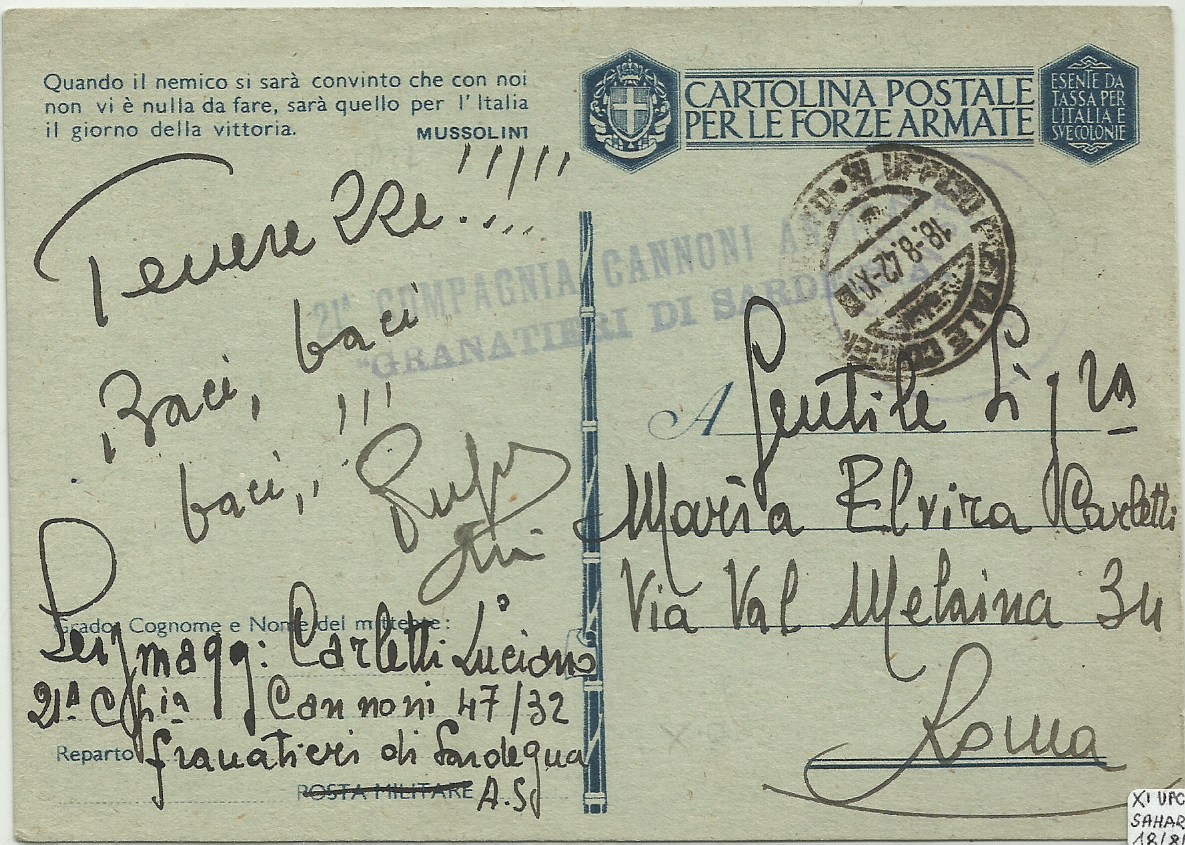 Quando il nemico si sarà convinto che con noi
non vi è nulla da fare, sarà quello per l'Italia
il giorno della vittoria.
MUSSOLINI
CARTOLINA POSTALE
PER LE FORZE ARMATE
ESENTE DA
TASSA PER
L'ITALIA E
SVE COLONIE
UFFICIO POSTALE
18-8-42-X
21ª COMPAGNIA CANNONI
"GRANATIERI DI SARDEGNA"
Tenerezze!!!!!!
Baci, baci
baci,, !!!
A Gentile Sig.ra
Maria Elvira Carletti
Via Val Melaina 34
Roma
Grado, Cognome e Nome del mittente:
Serg magg: Carletti Luciano
21ª Cpia Cannoni 47/32
Reparto Granatieri di Sardegna
POSTA MILITARE A.S.
XI UPC
SAHAR
18/8/